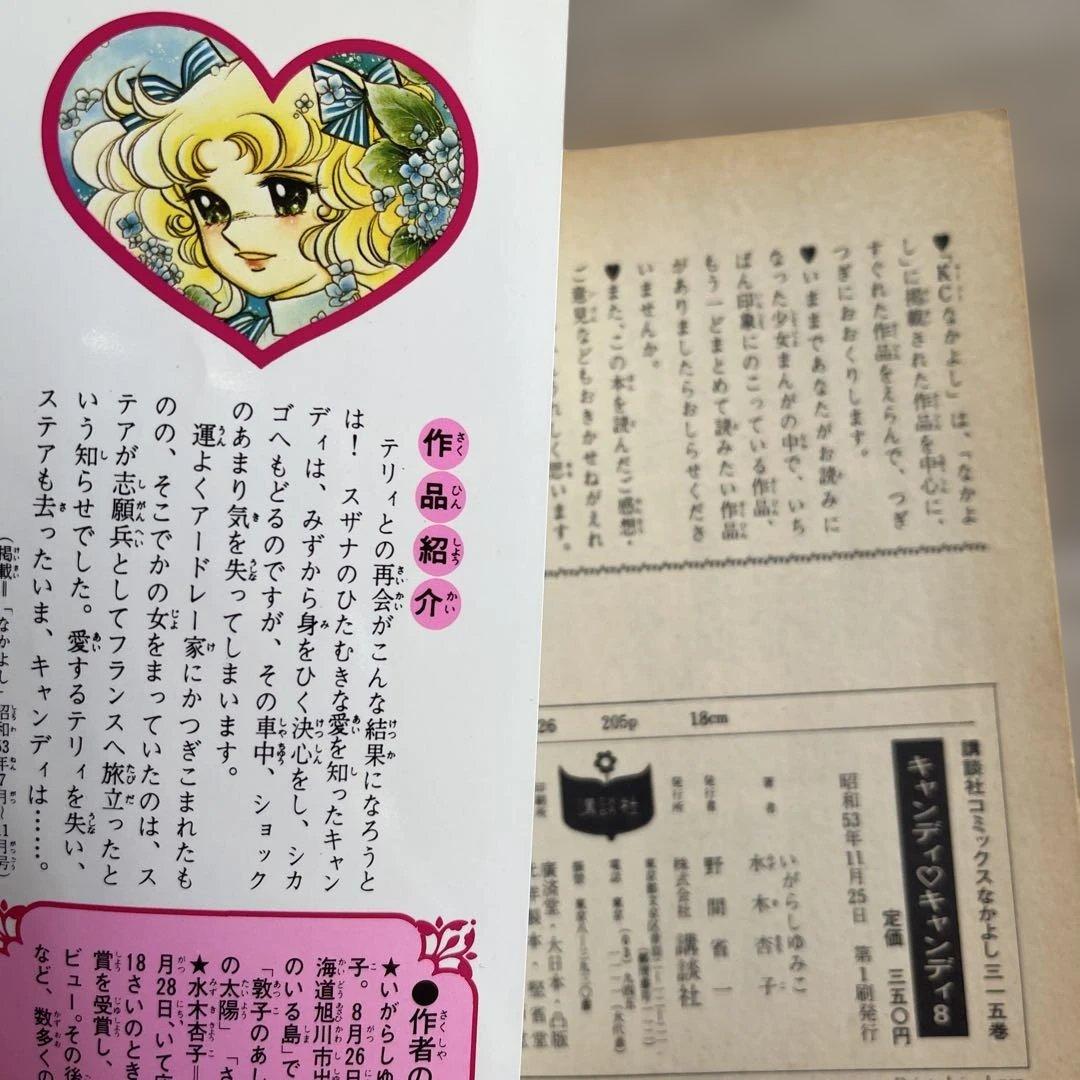 作品紹介
テリィとの再会がこんな結果になろうと
は! スザナのひたむきな愛を知ったキャン
ディは、みずから身をひく決心をし、シカ
ゴへもどるのですが、その車中、ショック
のあまり気を失ってしまいます。
運よくアードレー家にかつぎこまれたも
のの、そこでかの女をまっていたのは、ス
テアが志願兵としてフランスへ旅立ったと
いう知らせでした。愛するテリィを失い、
ステアも去ったいま、キャンディは……。
(掲載=「なかよし」昭和53年7月~11月号)
●作者の
★いがらしゆ
子。8月26日
海道旭川市出
のいる島」で
「敦子のあし
の太陽」「さ
★水木杏子=
月28日、いて座
18さいのとき
賞を受賞し、
ビュー。その後
など、数多くの
♥「KCなかよし」は、「なかよ
し」に掲載された作品を中心に、
すぐれた作品をえらんで、つぎ
つぎにおおくりします。
♥いままであなたがお読みに
なった少女まんがの中で、いち
ばん印象にのこっている作品、
もう一どまとめて読みたい作品
がありましたらおしらせくださ
いませんか。
♥また、この本を読んだご感想、
ご意見などもおきかせねがえれ
26 205p 18cm
講談社コミックスなかよし三一五巻
キャンディ♡キャンディ8
定価 三五〇円
昭和53年11月25日 第1刷発行
著者
いがらしゆみこ
水木杏子
発行者
野間省一
発行所
株式会社 講談社
講談社
廣済堂・大日本・凸版